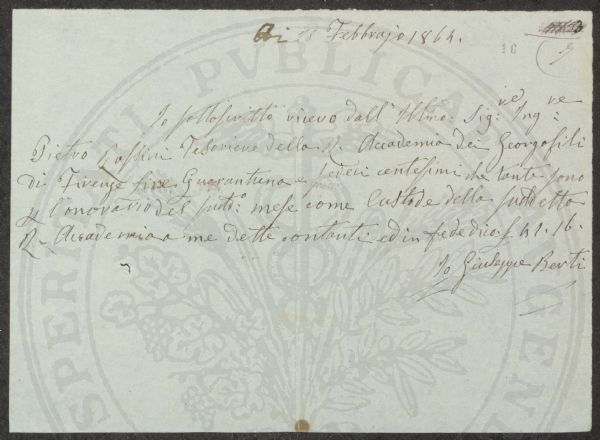 Febbrajo 1864.
16
9
Io sottoscritto ricevo dall' Illmo: Sigre: Ingre
Pietro Tesoriere della R. Accademia dei Georgofili
di Firenze Lire Quarantuna e sedici centesimi che tante sono
l'onorario del sudto: mese come Custode della suddetta
R. Accademia a me dette contanti ed in fede dico £ 41. 16.
Io Giuseppe Berti
PROSPERITATI PUBLICAE AUGENDAE